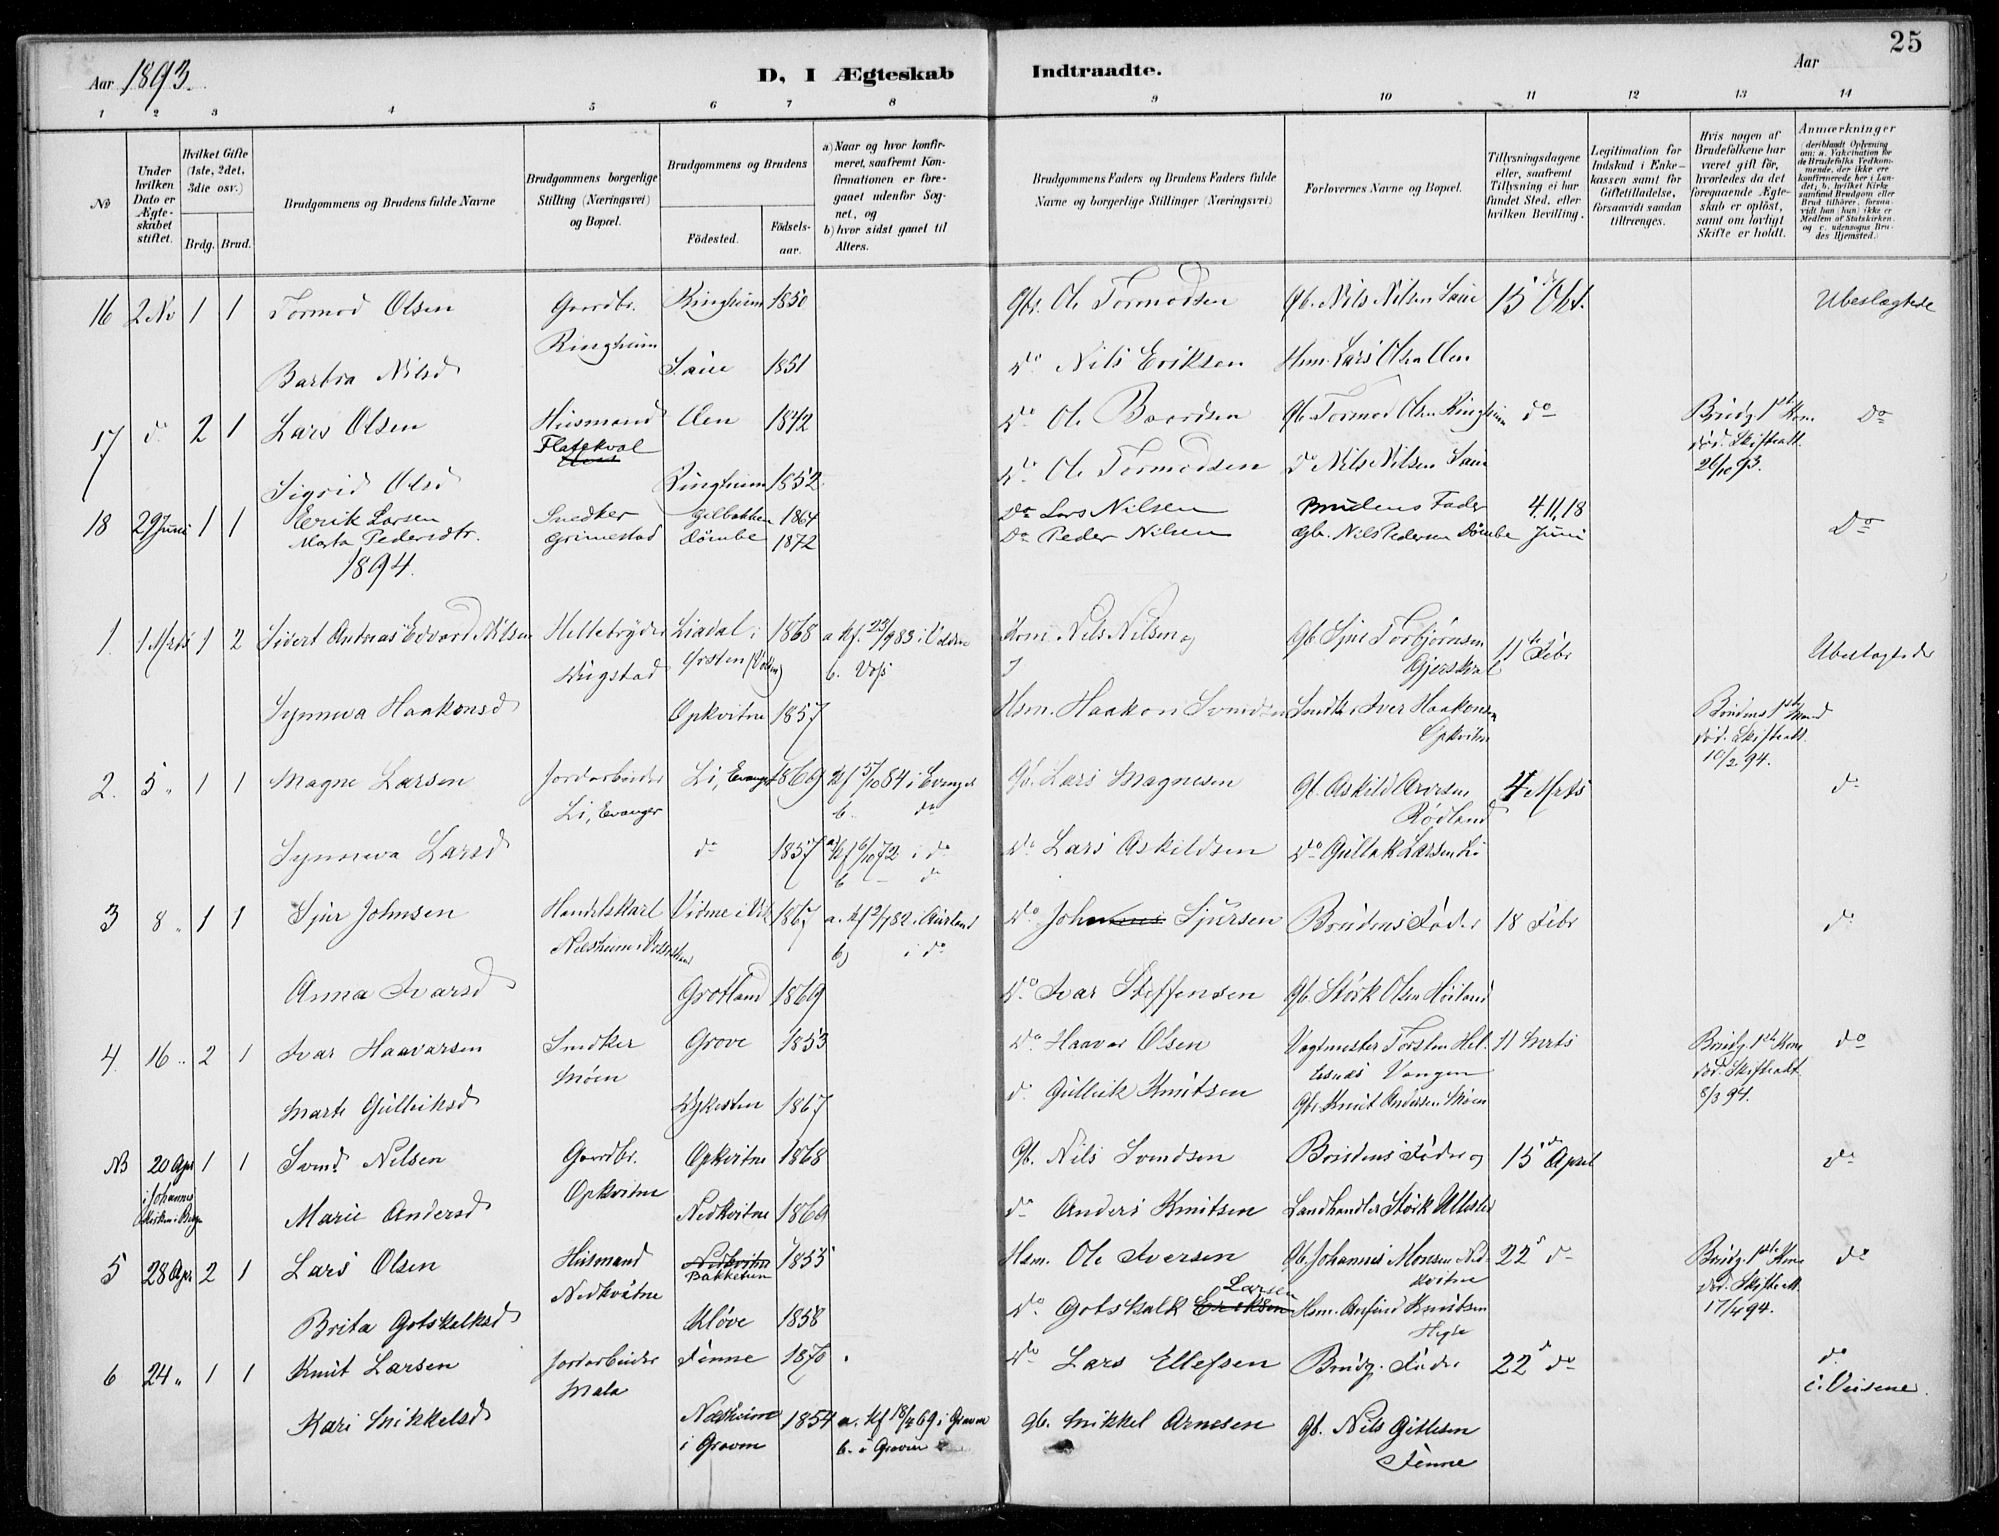 25
Aar 1893.
D, I Ægteskab Indtraadte.
Aar
1 2 3 4 5 6 7 8 9 10 11 12 13 14
No
Under hvilken Dato er Ægteskabet stiftet.
Hvilket Gifte (1ste, 2det, 3die osv.)
Brdg. Brud.
Brudgommens og Brudens fulde Navne
Brudgommens borgerlige Stilling (Næringsvei) og Bopæl.
Brudgommens og Brudens
Fødested. Fødselsaar.
a) Naar og hvor konfirmeret, saafremt Konfirmationen er foregaaet udenfor Sognet, og
b) hvor sidst gaaet til Alters.
Brudgommens Faders og Brudens Faders fulde Navne og borgerlige Stillinger (Næringsvei)
Forlovernes Navne og Bopæl.
Tillysningsdagene eller, saafremt Tillysning ei har fundet Sted, efter hvilken Bevilling.
Legitimation for Indskud i Enkekassen samt for Giftetilladelse, forsaavidt saadan tiltrænges.
Hvis nogen af Brudefolkene har været gift før, hvorledes da det foregaaende Ægteskab er opløst, samt om lovligt Skifte er holdt.
Anmærkninger (deriblandt Oplysning om: a. Vakcination for de Brudefolks Vedkommende, der ikke ere konfirmerede her i Landet; b. hvilket Kirkesamfund Brudgom eller Brud tilhører, forsaavidt han (hun) ikke er Medlem af Statskirken, og c. udensogns Brudes Hjemsted.)
16 2 Nv 1 1 Tormod Olsen Gaardbr. Ringheim 1850 Gbr. Ole Tormodsen Gb. Nils Nilsen Saue 15 Okt. Ubeslægtede
Ringheim
Barbra Nilsd Saue 1851 do Nils Eriksen Hsm. Lars Olsen Uen
17 do 2 1 Lars Olsen Husmand Uen 1842 do Ole Baardsen Gb. Tormod Olsen Ringheim do Brudg. 1ste Kone do
Flatekval død. Skifteatt.
Sigrid Olsd Ringheim 1852 do Ole Tormodsen do Nils Nilsen Saue 26/10 93.
18 29 Juni 1 1 Erik Larsen Snedker Gilbakken 1864 Do Lars Nilsen Brudens Fader 4. 11, 18 Do
Marta Pedersdtr. Grimestad Dømbe 1872 Do Peder Nilsen Gbr. Nils Pedersen Dømbe Juni
1894.
1. 1 Mrts 1 2 Sivert Andreas Edvard Nilsen Hellebryder Liadal i 1868 a Kf. 23/9 83 i Volden Hsm Nils Nilsen og Gb Sjur Torbjørnsen 11te Febr Ubeslægtede
Ørsten (Volden) b. Voss Gjerskval
Synneva Haakonsd Opkvitne 1857 Hsm. Haakon Svendsen Snedker Iver Haakonsen Brudens 1ste Mand
Opkvitne død. Skifteatt.
10/2 94.
2. 5 " 1 1 Magne Larsen Jordarbeider Li, Evanger 1869 Kf 5/10 84 i Evanger Gb. Lars Magnesen Gb. Askild 4 Mrts do
Li, Evanger b. do Rødland
Synneva Larsd do 1857 a) Kf 6/10 72 i do do Lars Askildsen do Gullak Larsen Li
b — do
3 8 " 1 1 Sjur Johnsen Handelskarl Vidme i Vik 1867 a. Kf 2/7 82 i Aurland do Johannes Sjursen Brudens Fader 18 Febr do
b) i do
Anna Ivarsd Grotland 1869 do Ivar Steffensen Gb. Størk Olsen Høiland
4. 16 " 2 1 Ivar Haavarsen Snedker Grove 1853 do Haavar Olsen Vagtmester Torsten Hel- 11 Mrts Brudg. 1ste Kone do
Møen lesnes Vangen død. Skifteatt.
Marte Gulleiksd Dykesten 1867 do Gulleik Knutsen Gbr. Knut Andersen Møen 8/3 94.
NB 20 Apr 1 1 Svend Nilsen Gaardbr. Opkvitne 1868 Gb. Nils Svendsen Brudens Fader og 15 April do
i Johannes Opkvitne
kirken i Bergen Marie Andersd Nedkvitne 1869 do Anders Knutsen Landhandler Størk Ullestad
5 28 Apr 2 1 Lars Olsen Husmand Nedkvitne 1855 Hsm. Ole Iversen Gb. Johannes Monsen Ned- 22 do Brudg. 1ste Kone do
Bakketun kvitne død. Skifteatt.
Nedkvitne Larsen 17/4 94.
Brita Gotskalksd Kløve 1858 do Gotskalk Eriksen Hsm. Anfind Knutsen
Hegle
6 24 " 1 1 Knut Larsen Jordarbeider Tenne 1870 do Lars Ellefsen Brudg. Fader 22 do do
Mala c. Veisene.
Kari Mikkelsd Næsheim 1854 a. Kf 18/4 69 i Graven gb. Mikkel Arnesen gb. Nils Gitlesen
i Graven b. i Graven Tenne